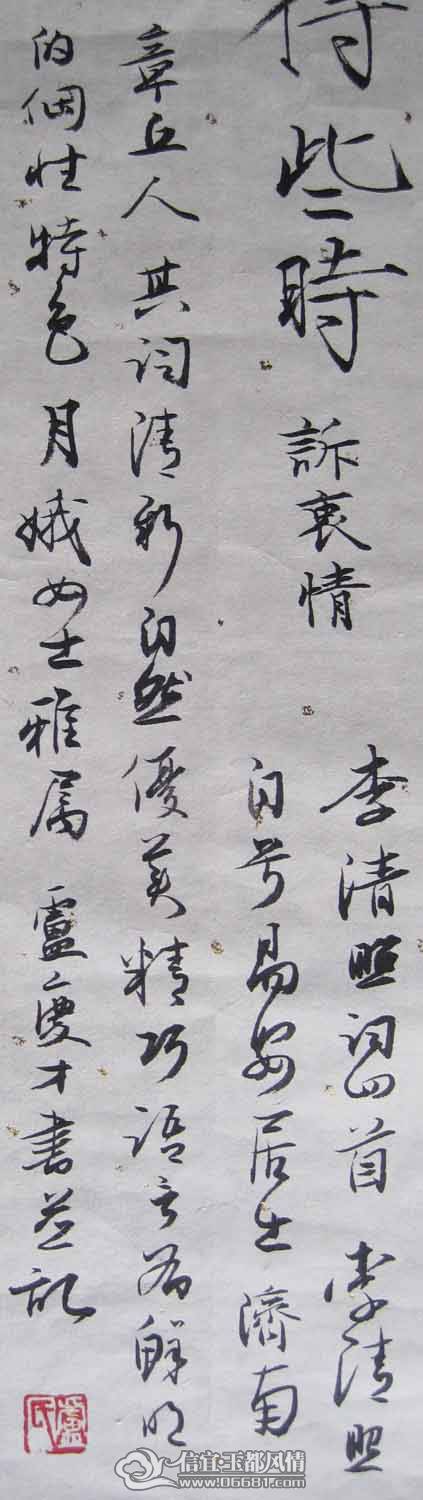 得些時 訴衷情
李清照词四首 李清照
自号易安居士 濟南
章丘人 其词清新自然優美精巧语言有鲜明
的個性特色 月娥女士雅属 盧慶才書并记
盧氏
信宜玉都风情
www.06681.com